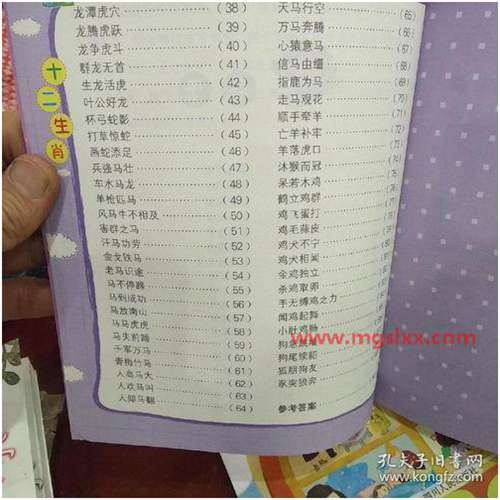 十二生肖
龙潭虎穴 (38)
龙腾虎跃 (39)
龙争虎斗 (40)
群龙无首 (41)
生龙活虎 (42)
叶公好龙 (43)
杯弓蛇影 (44)
打草惊蛇 (45)
画蛇添足 (46)
兵强马壮 (47)
车水马龙 (48)
单枪匹马 (49)
风马牛不相及 (50)
害群之马 (51)
汗马功劳 (52)
金戈铁马 (53)
老马识途 (54)
马不停蹄 (55)
马到成功 (56)
马放南山 (57)
马马虎虎 (58)
马失前蹄 (59)
千军万马 (60)
青梅竹马 (61)
人高马大 (62)
人欢马叫 (63)
人仰马翻 (64)
天马行空 (65)
万马奔腾 (66)
心猿意马 (67)
信马由缰 (68)
指鹿为马 (69)
走马观花 (70)
顺手牵羊 (71)
亡羊补牢 (72)
羊落虎口
沐猴而冠
呆若木鸡
鹤立鸡群
鸡飞蛋打
鸡毛蒜皮
鸡犬不宁
鸡犬相闻
金鸡独立
杀鸡取卵
手无缚鸡之力
闻鸡起舞
小肚鸡肠
狗急
狗尾续貂
狐朋狗友
豕突狼奔
参考答案
www.mgslxx.com
孔夫子旧书网
kongfz.com